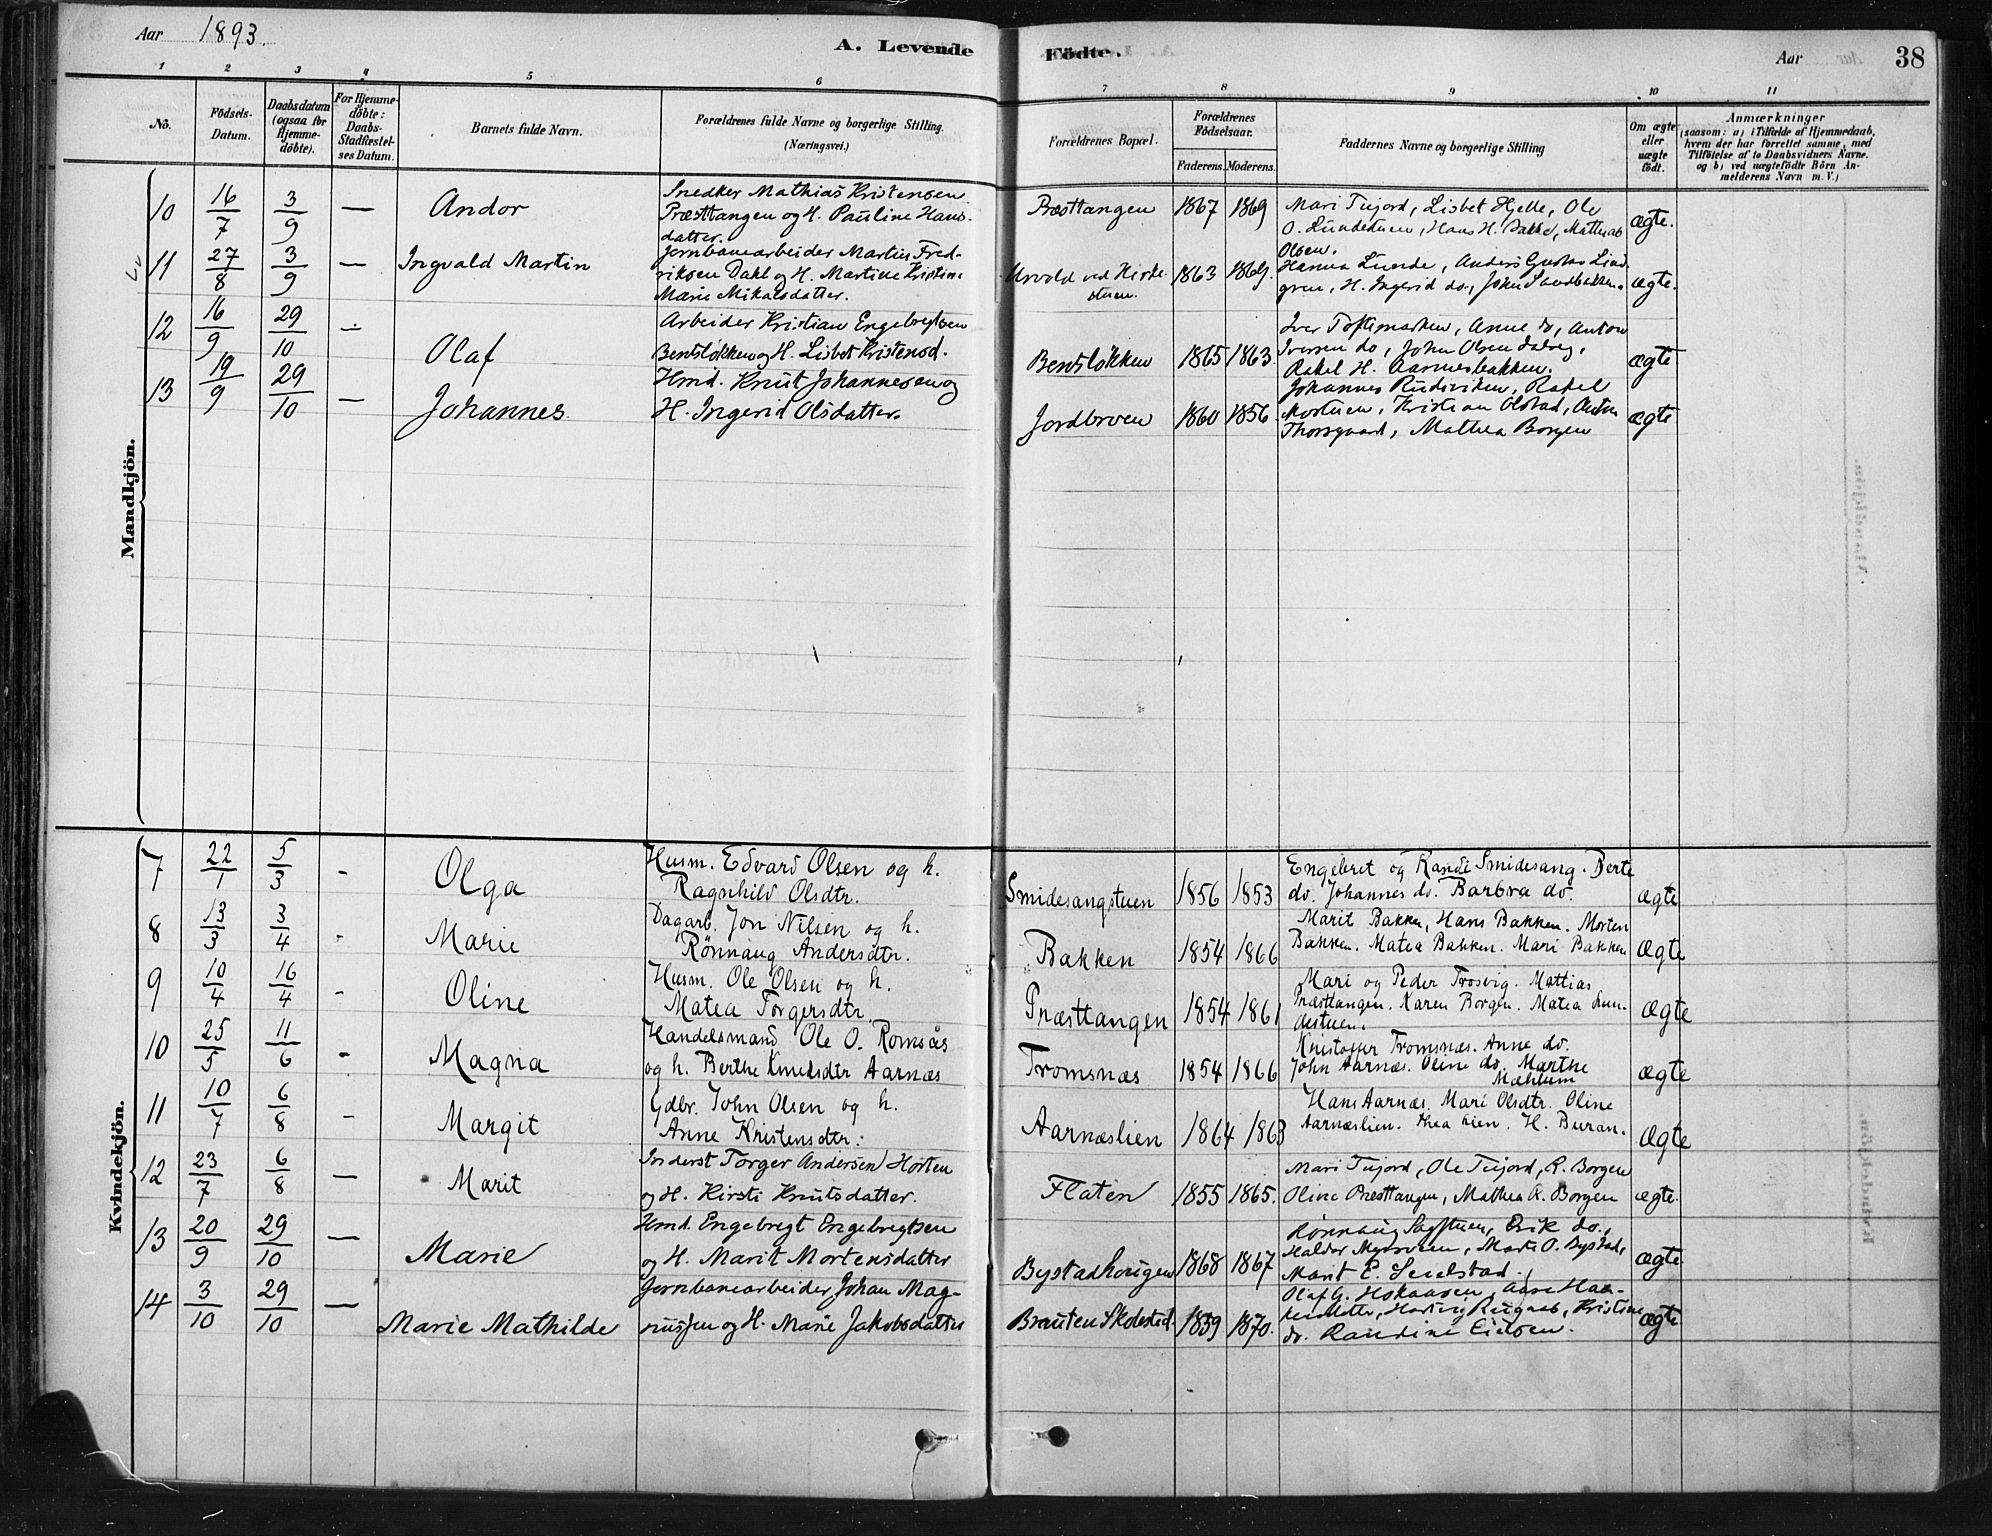 Aar 1893.
A. Levende Fødte.
Aar
38
1 2 3 4 5 6 7 8 9 10 11
No.
Fødsels-Datum.
Daabsdatum (ogsaa for Hjemme-døbte).
For Hjemme-døbte: Daabs-Stadfæstel-ses Datum.
Barnets fulde Navn.
Forældrenes fulde Navne og borgerlige Stilling.
(Næringsvei.)
Forældrenes Bopæl.
Forældrenes Fødselsaar.
Faderens. Moderens.
Faddernes Navne og borgerlige Stilling
Om ægte eller uægte født.
Anmærkninger
(saasom: a) i Tilfælde af Hjemmedaab, hvem der har forrettet samme, med Tilføielse af to Daabsvidners Navne, og b) ved uægtefødte Børn Anmelderens Navn m. V.)
Mandkjön.
10 16/7 3/9 — Andor
Snedker Mathias Kristensen
Præsttangen og H. Pauline Hans-
datter.
Præsttangen 1867 1869
Mari Tujord, Lisbet Hjelle, Ole
O. Lundestuen, Hans H. Bakke, Mathias
Olsen.
ægte.
11 27/8 3/9 — Ingvald Martin
Jernbanearbeider Martin Fred-
riksen Dahl og H. Martine Kristine
Marie Mikalsdatter.
Urvold ved Kirke-
stuen.
1863 1869.
Hanna Lunde, Anders Gustav Lind-
gren, H. Ingerid do., John Sandbakken.
ægte.
12 16/9 29/10 — Olaf
Arbeider Kristian Engebretsen
Bentsløkken og H. Lisbet Kristensd.
Bentsløkken 1865 1863.
Iver Toftemarken, Anne do, Anton
Iversen do, John Olsen Dalseg,
Rakel H. Aarnesbakken.
ægte
13 19/9 29/10 — Johannes.
Hmd. Knut Johannesen og
H. Ingerid Olsdatter.
Jordbroen 1860 1856.
Johannes Rudsviken, Rakel
Mostuen, Kristian Olstad, Anton
Thorsgaard, Mathea Borgen
ægte
Kvindekjön.
7 22/1 5/3 - Olga
Husm. Edvard Olsen og h.
Ragnhild Olsdtr.
Smidesangstuen 1856 1853
Engebret og Randi Smidesang. Berte
do. Johannes do. Barbra do.
ægte
8 13/3 3/4 - Marie
Dagarb. Jon Nilsen og h.
Rönnaug Andersdtr.
Bakken 1854 1866
Marit Bakken, Hans Bakken. Morten
Bakken. Matea Bakken. Mari Bakken
ægte
9 10/4 16/4 - Oline
Husm. Ole Olsen og h.
Matea Torgersdtr.
Præsttangen 1854 1861
Mari og Peder Trosvig. Mattias
Præsttangen. Karen Borgen. Matea Lun-
destuen.
ægte
10 25/5 11/6 - Magna
Handelsmand Ole O. Romsås
og h. Berthe Knutsdtr Aarnæs
Tromsnæs 1854 1866
Kristoffer Tromsnæs. Anne do.
John Aarnæs. Oline do. Marthe
Mæhlum
ægte
11 10/7 6/8 - Margit
Gdbr. John Olsen og h.
Anne Kristensdtr.
Aarnæslien 1864 1863
Hans Aarnæs. Mari Olsdtr. Oline
Aarnæslien. Thea Lien. H. Buran.
ægte
12 23/7 6/8 — Marit
Inderst Torger Andersen Horten
og H. Kirsti Knutsdatter.
Flaten 1855 1865.
Mari Tujord, Ole Tujord, R. Borgen
Oline Præsttangen, Mathea K. Borgen
ægte.
13 20/9 29/10 — Marie
Hmd. Engebregt Engebregtsen
og H. Marit Mortensdatter
Bystadhougen 1868 1867
Rønnaug Sagstuen, Erik do.,
Haldor Myrveen, Marte O. Bystad,
Marit E. Seielstad.
ægte.
14 3/10 29/10 — Marie Mathilde
Jernbanearbeider Johan Mag-
nussen og H. Marie Jakobsdatter
Brauten Skolested. 1859 1870.
Olaf G.
Kristine
do. Randine
ægte.